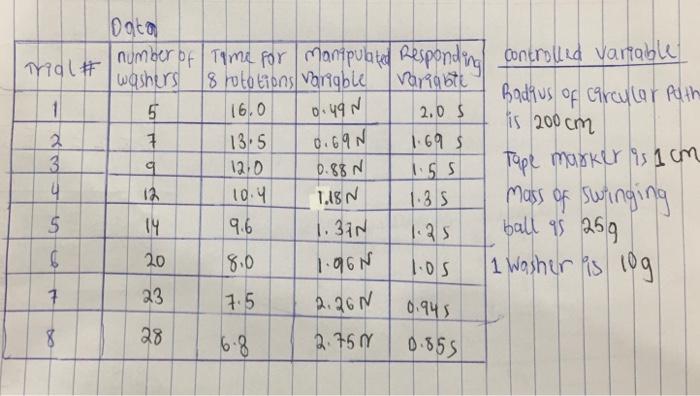 Data
Trial # number of washers Time for 8 rotations Manipulated variable Responding variable
1 5 16.0 0.49 N 2.0 s
2 7 13.5 0.69 N 1.69 s
3 9 12.0 0.88 N 1.5 s
4 12 10.4 1.18 N 1.3 s
5 14 9.6 1.37 N 1.2 s
6 20 8.0 1.96 N 1.0 s
7 23 7.5 2.26 N 0.94 s
8 28 6.8 2.75 N 0.85 s
controlled variable
Radius of circular path
is 200 cm
Tape marker is 1 cm
Mass of swinging
ball is 25g
1 washer is 10g